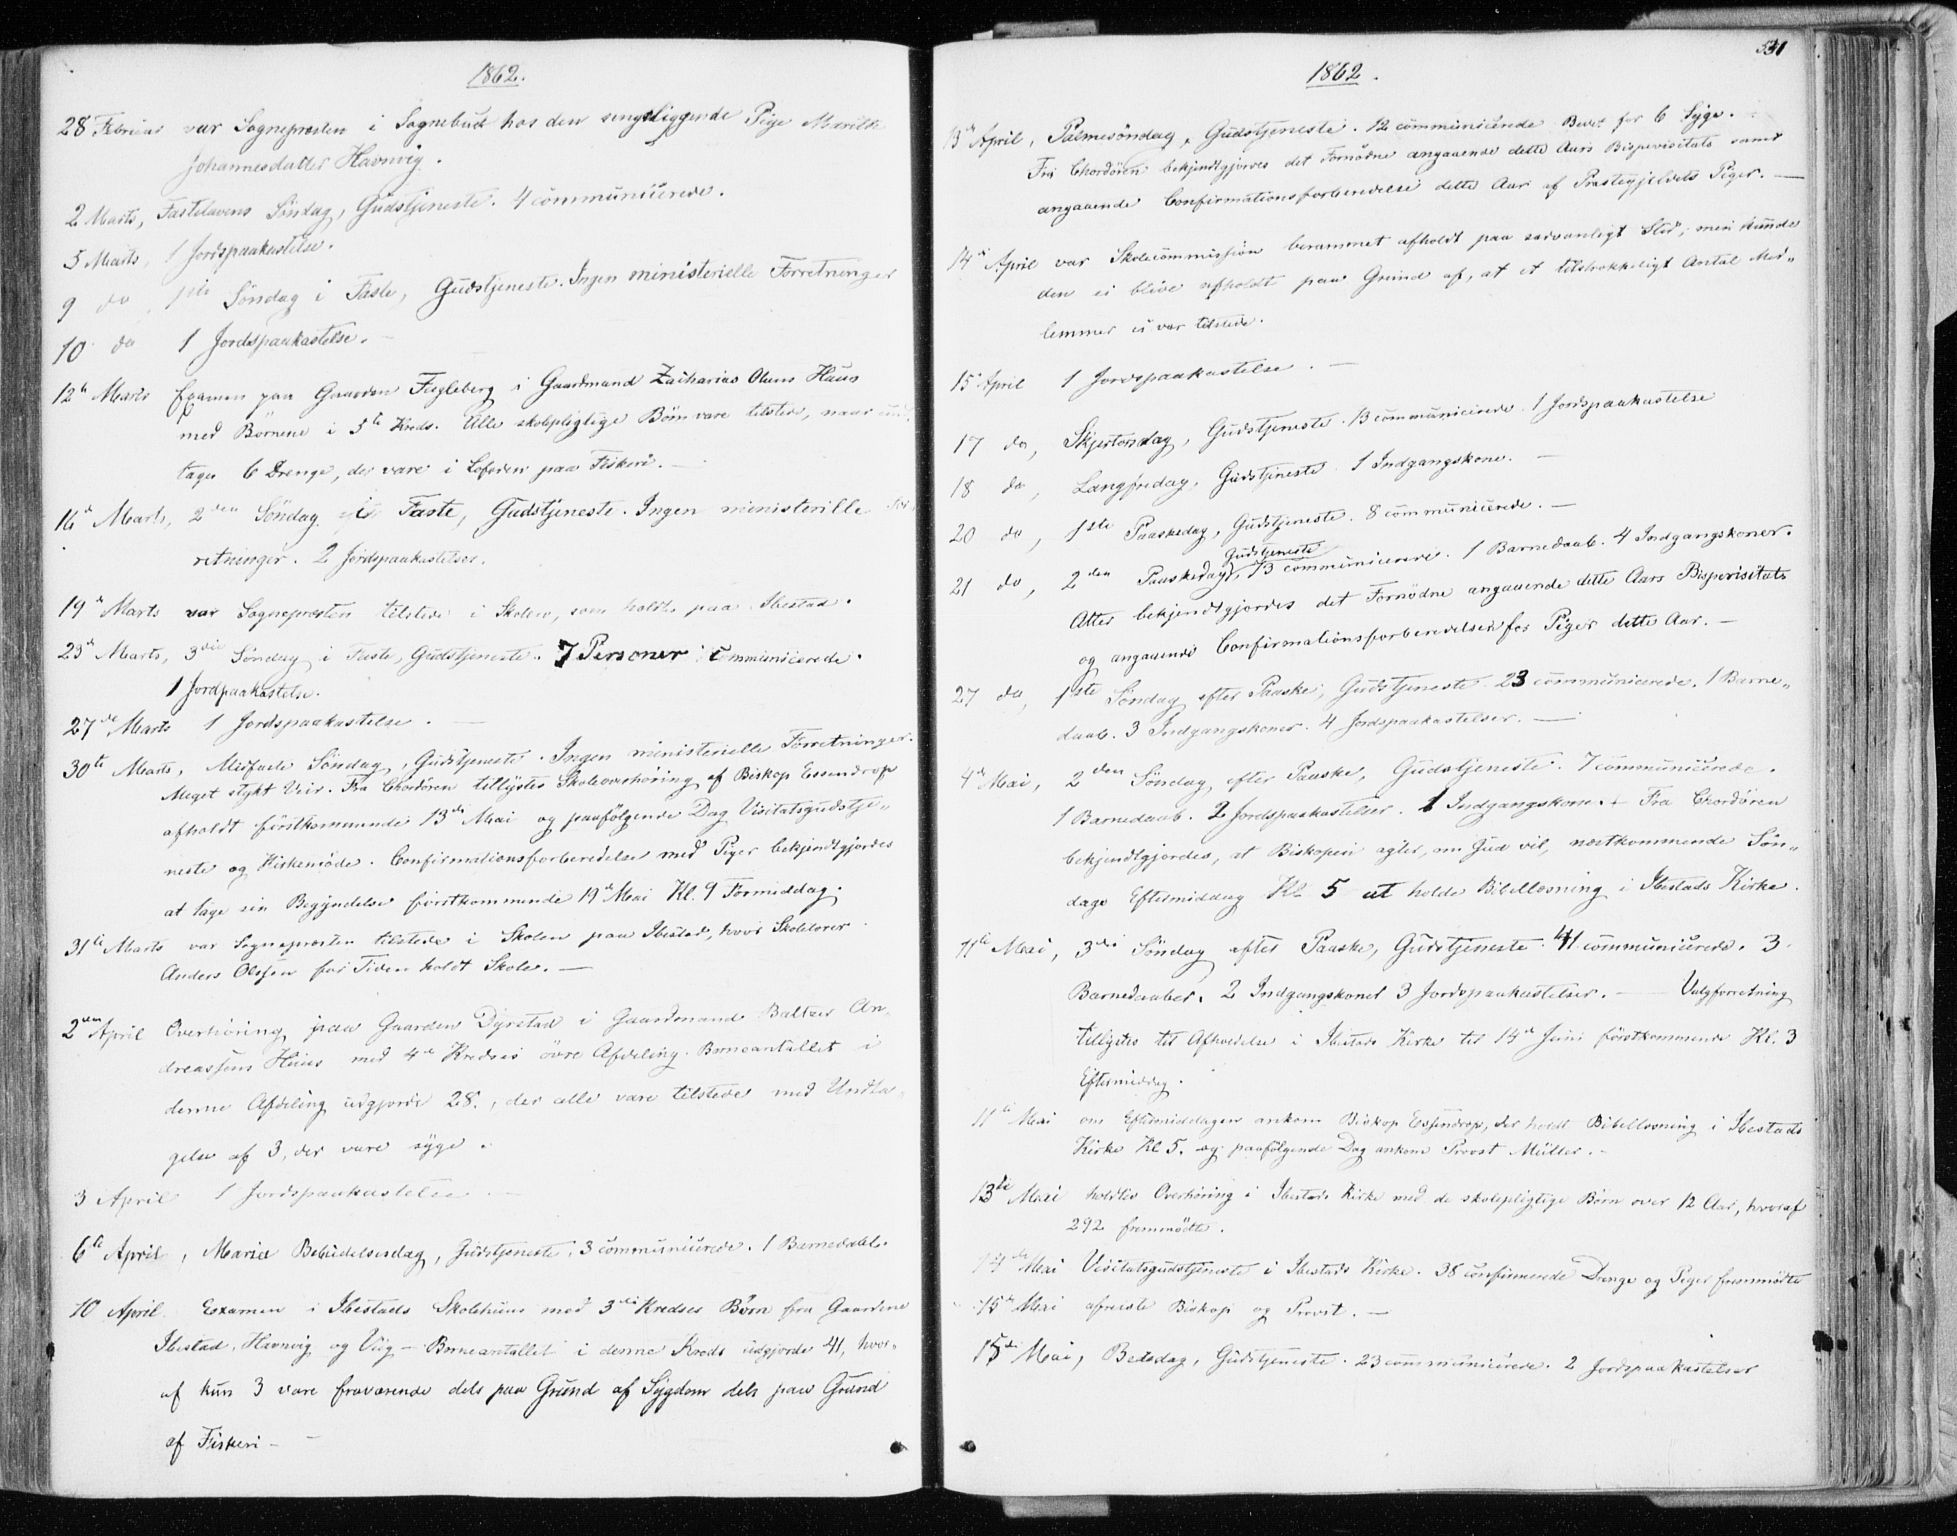 1862.
28 Februar var Sognepresten i Sognebud hos den sengeliggende Pige Marith
Johannesdatter Havnvig.
2 Marts, Fastelavens Söndag, Gudstjeneste. 4 communicerede.
5 Marts, 1 Jordspaakastelse.
9 do 1ste Söndag i Faste, Gudstjeneste. Ingen ministerielle Forretninger
10 do 1 Jordspaakastelse.
12te Marts Examen paa Gaarden Fugleberg i Gaardmand Zacharias Olsens Huus
med Börnene i 5te Kreds. Alle skolepligtige Börn vare tilstede, naar und„
tages 6 Drenge, der vare i Lofoden paa Fiskeri.
16de Marts, 2den Söndag i Faste, Gudstjeneste. Ingen ministerielle For„
retninger. 2 Jordspaakastelser.
19de Marts var Sognepresten tilstede i Skolen, som holdtes paa Ibestad.
23de Marts, 3die Söndag i Faste, Gudstjeneste. 7 Personer communicerede.
1 Jordpaakastelse.
27de Marts 1 Jordspaakastelse.
30te Marts, Midfaste Söndag, Gudstjeneste. Ingen ministerielle Forretninger.
Meget stykt Veir. Fra Chordören tillystes Skoleoverhöring af Biskop Essendrop
afholdt förstkommende 13de Mai og paafölgende Dag Visitatsgudstje„
neste og Kirkemöde. Confirmationsforberedelse med Piger bekjendtgjordes
at tage sin Begyndelse förstkommende 19de Mai Kl. 9 Formiddag.
31te Marts var Sognepresten tilstede i Skolen paa Ibestad, hvor Skolelærer
Anders Olsen for Tiden holdt Skole.
2den April Overhöring paa Gaarden Dyrstad i Gaardmand Baltzer An„
dreassens Huus med 4de Kredses övre Afdeling. Börneantallet i
denne Afdeling udgjorde 28, der alle vare tilstede med Undta„
gelse af 3, der vare syge.
3 April 1 Jordspaakastelse
6te April, Maria Bebudelsesdag, Gudstjeneste. 3 communicerede. 1 Barnedaab.
10 April. Examen i Ibestads Skolehuus med 3die Kredses Börn fra Gaardene
Ibestad, Havnvig og Viig — Börneantallet i denne Kreds udgjorde 41, hvor„
af kun 3 vare fraværende dels paa Grund af Sygdom dels paa Grund
af Fiskeri —
531
1862.
13de April, Palmesöndag, Gudstjeneste. 12 communicerede. Bedet for 6 Syge.
Fra Chordören bekjendtgjordes det Fornödne angaaende dette Aars Bispevisitats samt
angaaende Confirmationsforberedelse dette Aar af Prestegjeldets Piger.
14de April var Skolecommission berammet afholdt paa sædvanligt Sted; men kunde
den ei blive afholdt paa Grund af, at et tilstrækkeligt Antal Med„
lemmer ei var tilstede.
15 April 1 Jordspaakastelse.
17 do, Skjertorsdag, Gudstjeneste. 13 communicerede. 1 Jordspaakastelse
18 do, Langfredag, Gudstjeneste. 1 Indgangskone.
20 do, 1ste Paaskedag, Gudstjeneste. 8 communicerede.
21 do, 2den Paaskedag, Gudstjeneste 13 communicerede. 1 Barnedaab. 4 Indgangskoner.
Atter bekjendtgjordes det Fornödne angaaende dette Aars Bispevisitats
og angaaende Confirmationsforberedelsen for Piger dette Aar.
27 do, 1ste Söndag efter Paaske, Gudstjeneste. 23 communicerede. 1 Barne„
daab. 3 Indgangskoner. 4 Jordspaakastelser.
4de Mai, 2den Söndag efter Paaske, Gudstjeneste. 7 communicerede.
1 Barnedaab. 2 Jordspaakastelser. 1 Indgangskone. Fra Chordören
bekjendtgjordes, at Biskopen agter, om Gud vil, næstkommende Sön„
dags Eftermiddag Kl. 5 at holde Bibellæsning i Ibestads Kirke.
11te Mai, 3die Söndag efter Paaske, Gudstjeneste. 41 communicerede. 3
Barnedaaber. 2 Indgangskoner 3 Jordspaakastelser. — Valgforretning
tillystes til Afholdelse i Ibestads Kirke til 14de Juni förstkommende Kl. 3
Eftermiddag.
11te Mai om Eftermiddagen ankom Biskop Essendrop, der holdt Bibellæsning i Ibestads
Kirke Kl 5. og paafölgende Dag ankom Provst Müller.
13de Mai holdtes Overhöring i Ibestads Kirke med de skolepligtige Börn over 12 Aar, hvoraf
292 fremmödte.
14de Mai Visitatsgudstjeneste i Ibestads Kirke. 38 confirmerede Drenge og Piger fremmödte
15de Mai afreiste Biskop og Provst.
15de Mai, Bededag, Gudstjeneste. 23 communicerede. 2 Jordspaakastelser